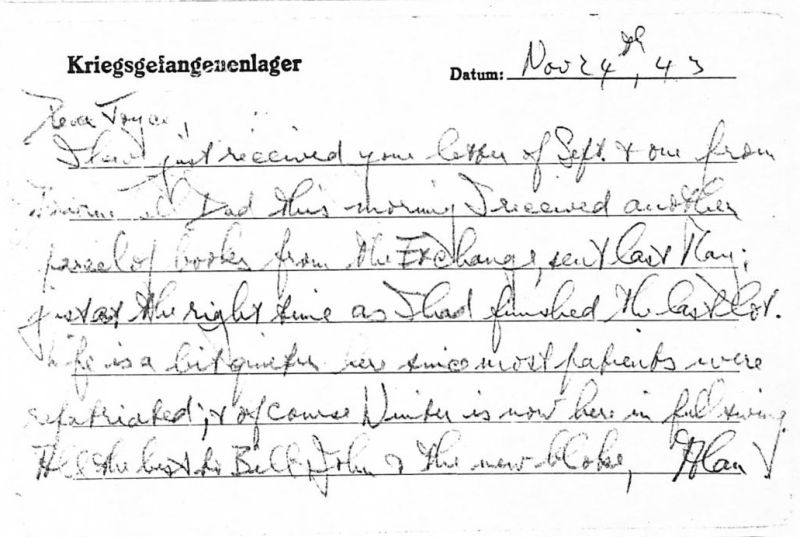 Kriegsgefangenenlager
Datum: Nov 24th, 43
Dear Joyce,
I have just received your letter of Sept. & one from
Mum & Dad this morning I received another
parcel of books from the Exchange, sent last May;
just at the right time as I had finished the last lot.
Life is a bit quieter here since most patients were
repatriated; & of course Winter is now here in full swing
All the best to Bill, John & the new bloke, Alan